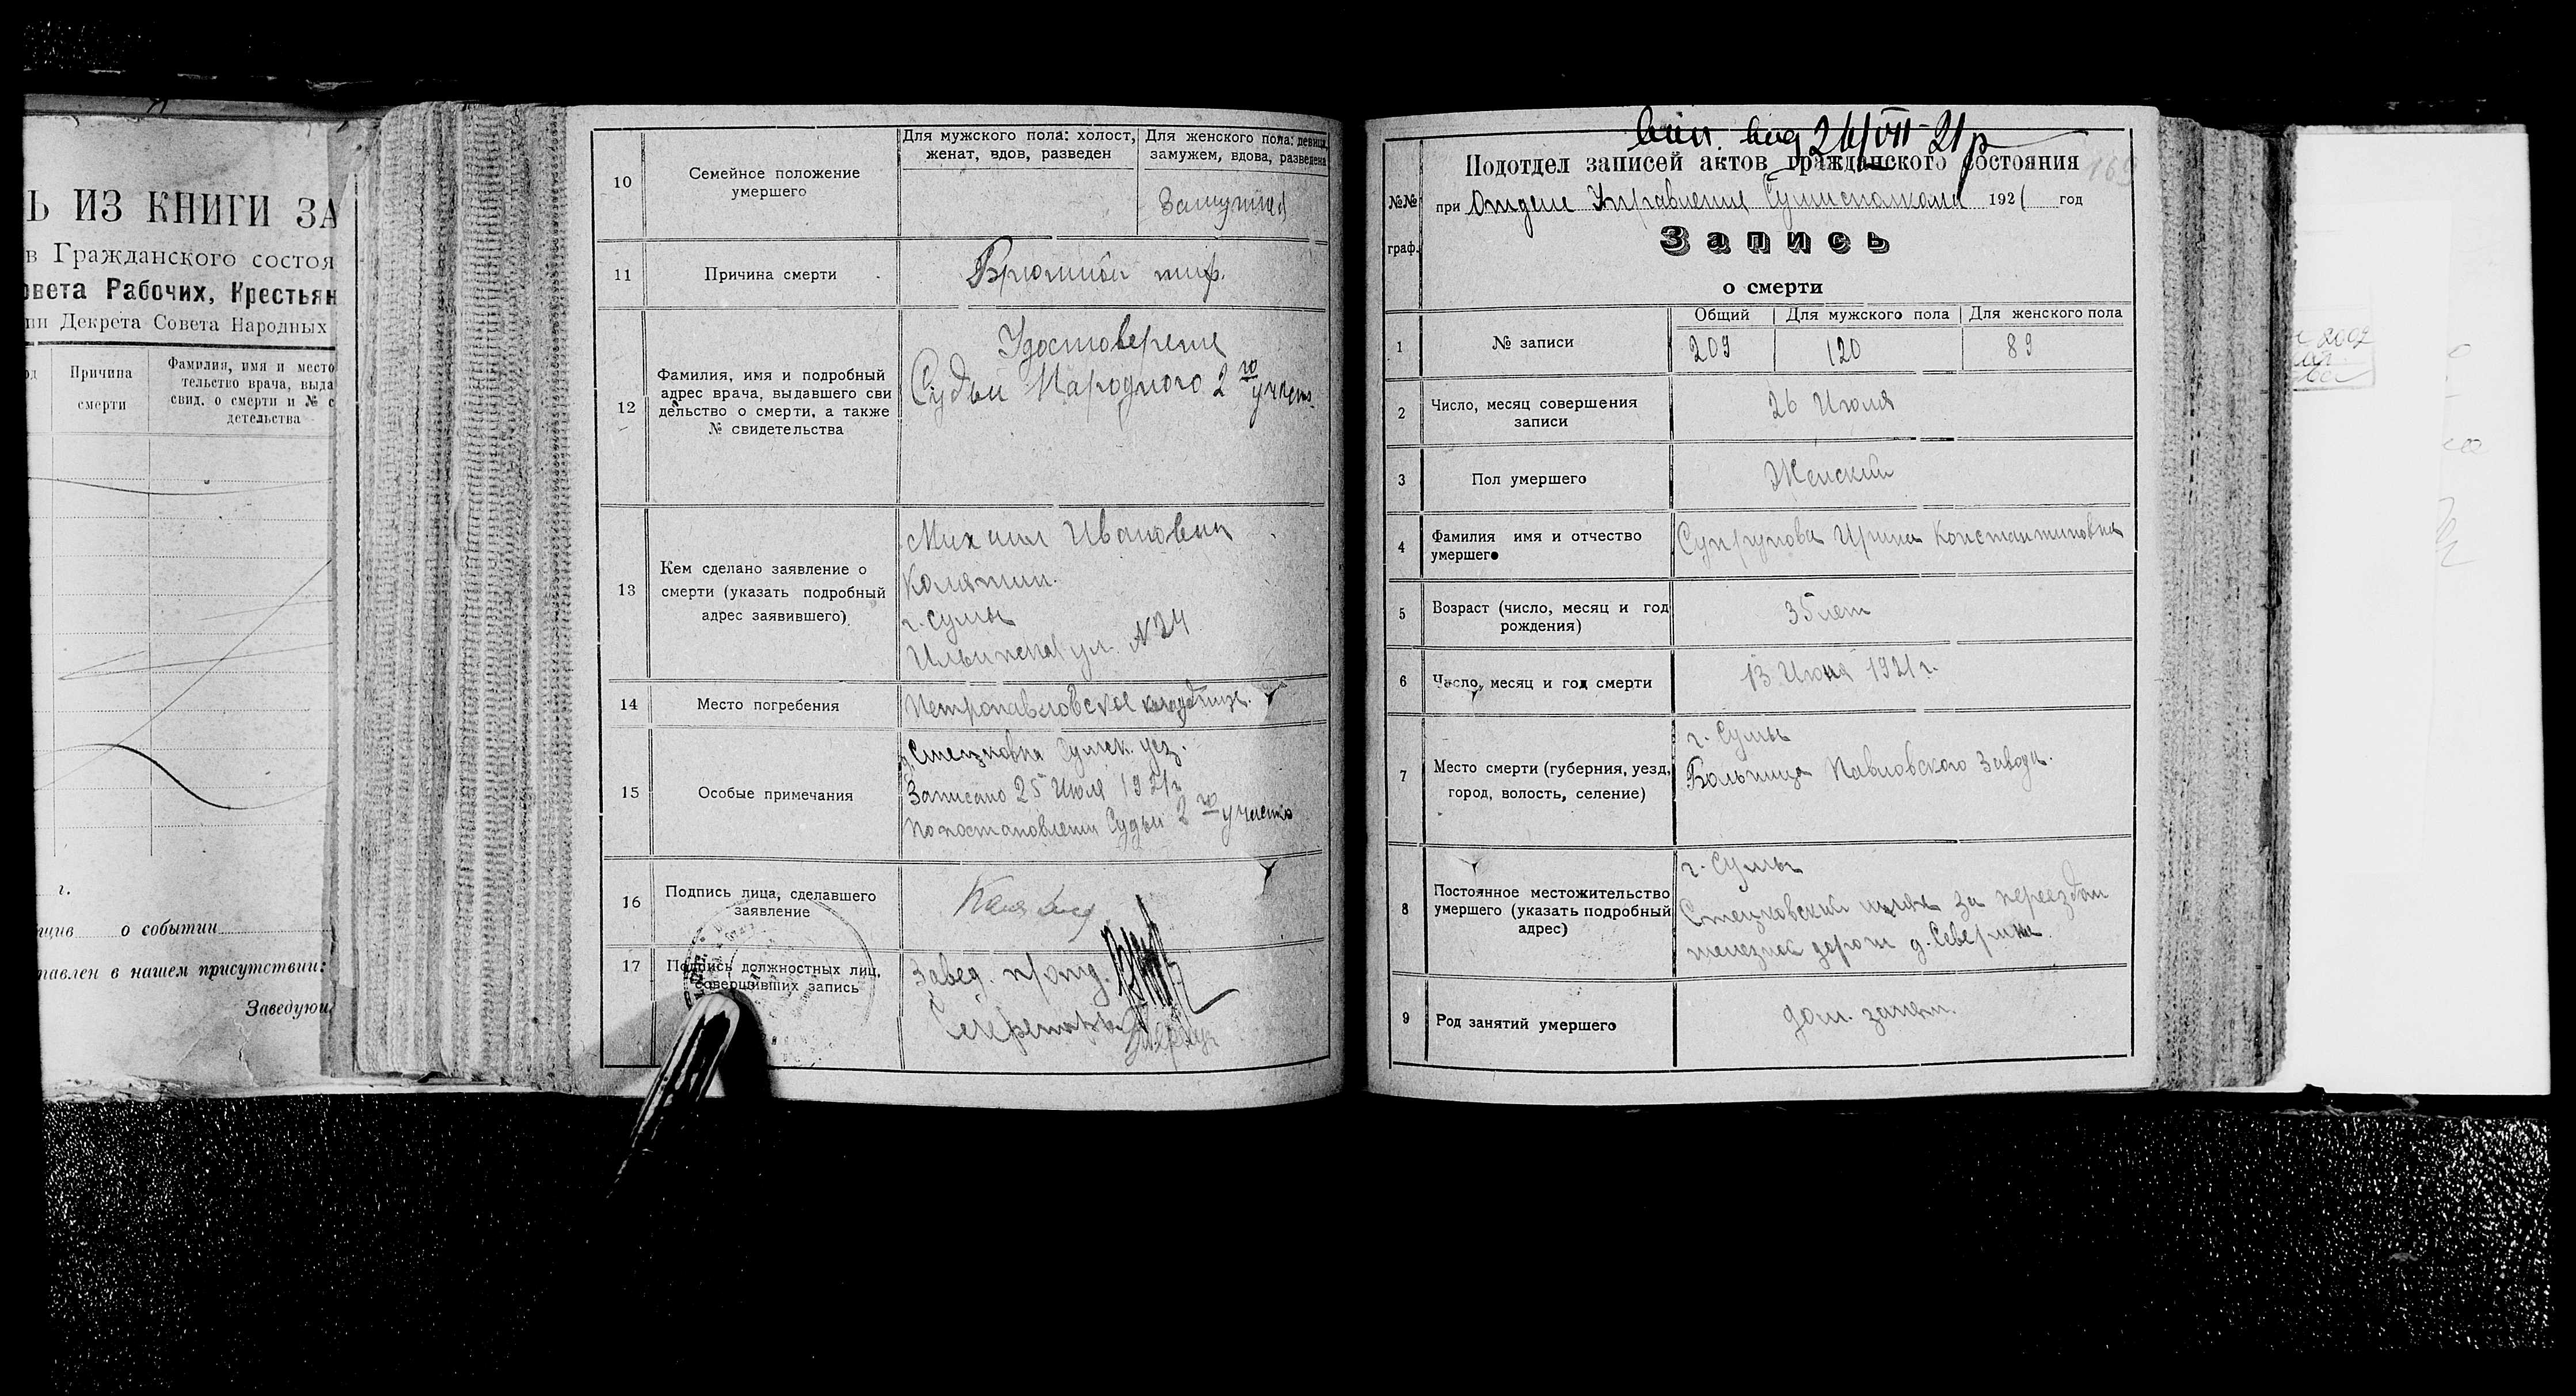 Ь ИЗ КНИГИ ЗА
в Гражданского состоя
овета Рабочих, Крестьян
ии Декрета Совета Народных
Причина смерти
Фамилия, имя и место
тельство врача, выда
свид. о смерти и № с
детельства
г.
о событии
тавлен в нашем присутствии:
Заведую
10
Семейное положение
умершего
Для мужского пола: холост,
женат, вдов, разведен
Для женского пола: девица,
замужем, вдова, разведена
Замужняя
11
Причина смерти
Брюшной тиф.
12
Фамилия, имя и подробный
адрес врача, выдавшего сви
дельство о смерти, а также
№ свидетельства
Удостоверение
Судьи Народного 2го участ.
13
Кем сделано заявление о
смерти (указать подробный
адрес заявившего)
Михаил Иванович
Калятин.
г. Сумы
Ильинская ул. №24
14
Место погребения
Петропавловское кладбище.
15
Особые примечания
Стецковка Сумск. уез.
Записано 25 Июля 1921г.
по постановлении Судьи 2го участка
16
Подпись лица, сделавшего
заявление
17
Подпись должностных лиц,
совершивших запись
Завед. п/отд.
Секретарь
вид 26/VII 21р
Подотдел записей актов гражданского состояния
169
№№
граф.
при Отделе Управления Сумисполкома 1921 год
Запись
о смерти
1
№ записи
Общий
Для мужского пола
Для женского пола
209
120
89
2
Число, месяц совершения
записи
26 Июля
3
Пол умершего
Женский
4
Фамилия имя и отчество
умершего
Супрунова Ирина Константиновна
5
Возраст (число, месяц и год
рождения)
35 лет
6
Число, месяц и год смерти
13 Июня 1921 г.
7
Место смерти (губерния, уезд,
город, волость, селение)
г. Сумы
Больница Павловского Завода.
8
Постоянное местожительство
умершего (указать подробный
адрес)
г. Сумы
Стецковский шлях за переездом
железной дороги д. Северина
9
Род занятий умершего
дом. занят.